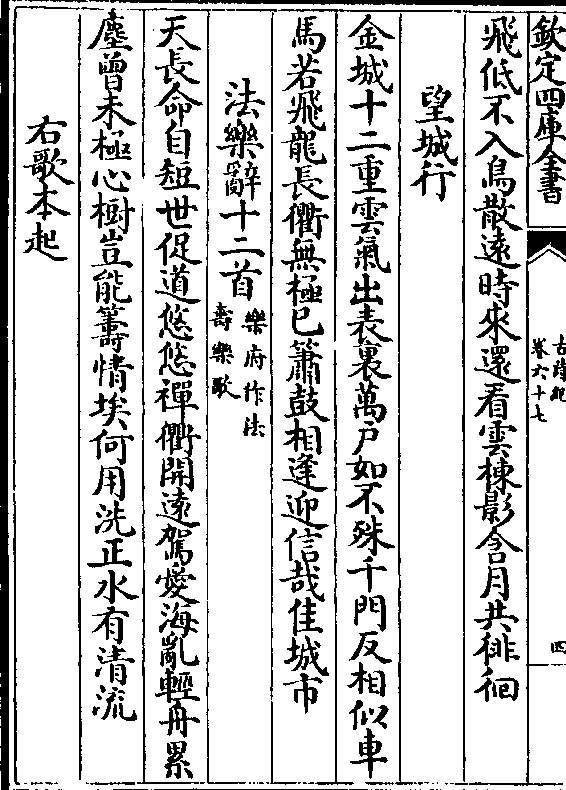 欽定四庫全書
古詩紀
卷六十七
四
飛低不入鳥散遠時來還看雲棟影含月共徘徊
望城行
金城十二重雲氣出表裏萬戸如不殊千門反相似車
馬若飛龍長衢無極已簫鼓相逢迎信哉佳城市
法樂辭十二首樂府作法
壽樂歌
天長命自短世促道悠悠禪衢開遠駕愛海亂輕舟累
塵曾未極心樹豈能籌情埃何用洗正水有清流
右歌本起